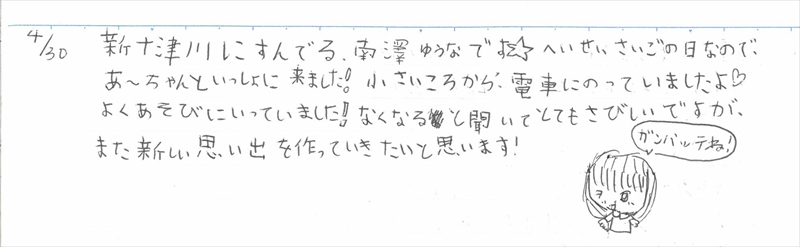 4/30
新十津川にすんでる、南澤ゆうなです☆へいせいさいごの日なので、
あ〜ちゃんといっしょに来ました!小さいころから、電車にのっていましたよ♡
よくあそびにいっていました!なくなると聞いてとてもさびしいですが、
また新しい思い出を作っていきたいと思います!
ガンバッテね!